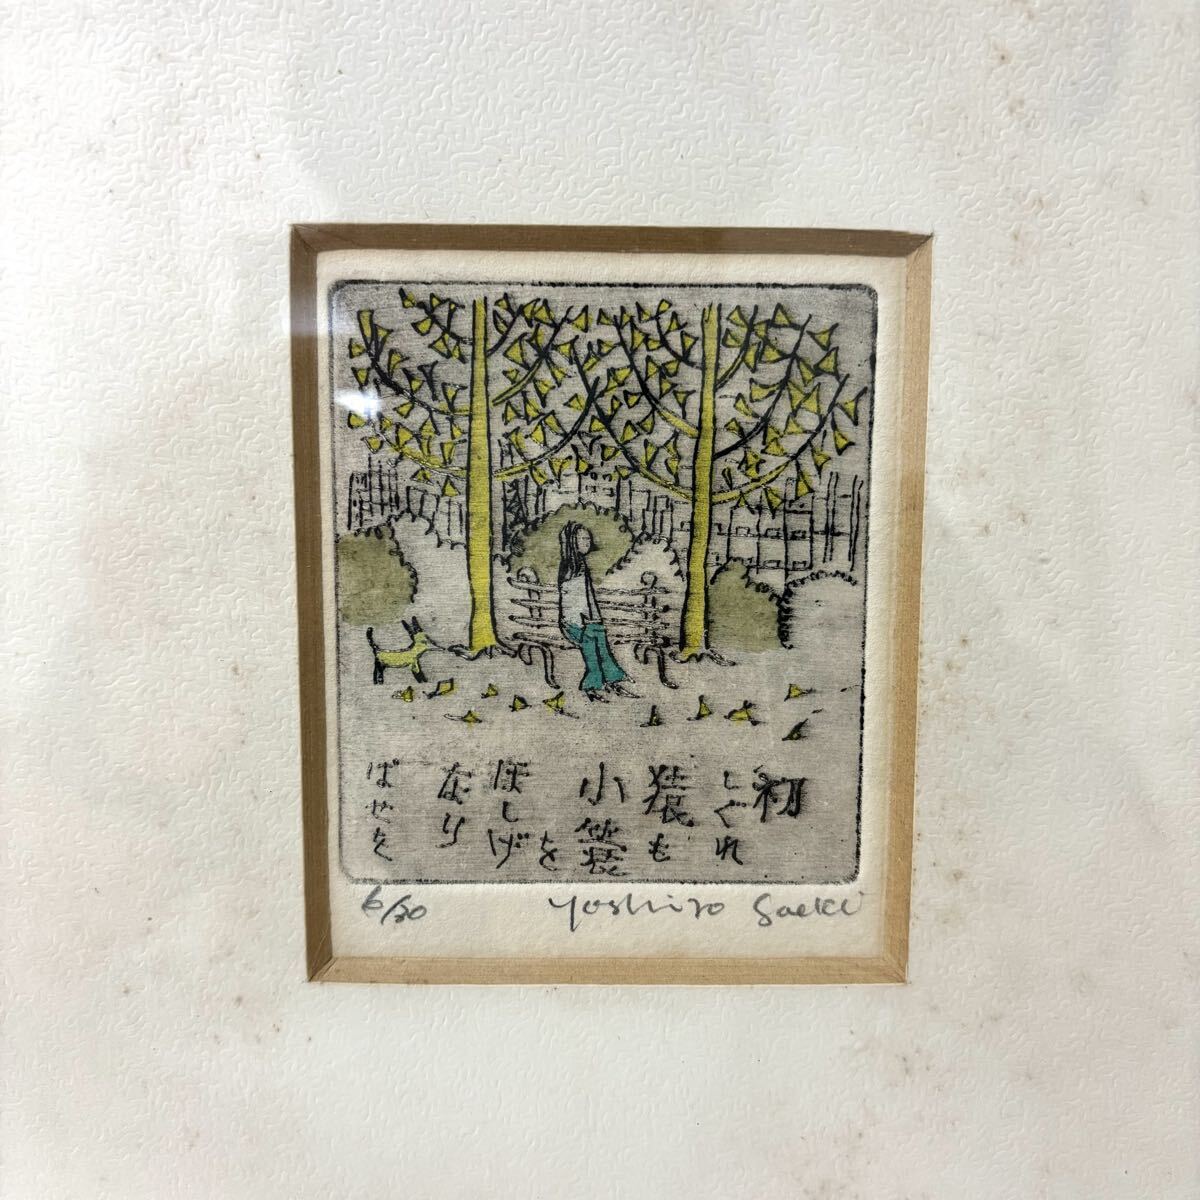 初
しぐれ
猿も
小蓑を
ほしげ
なり
ばせを
6/30
Yoshiro Saeki